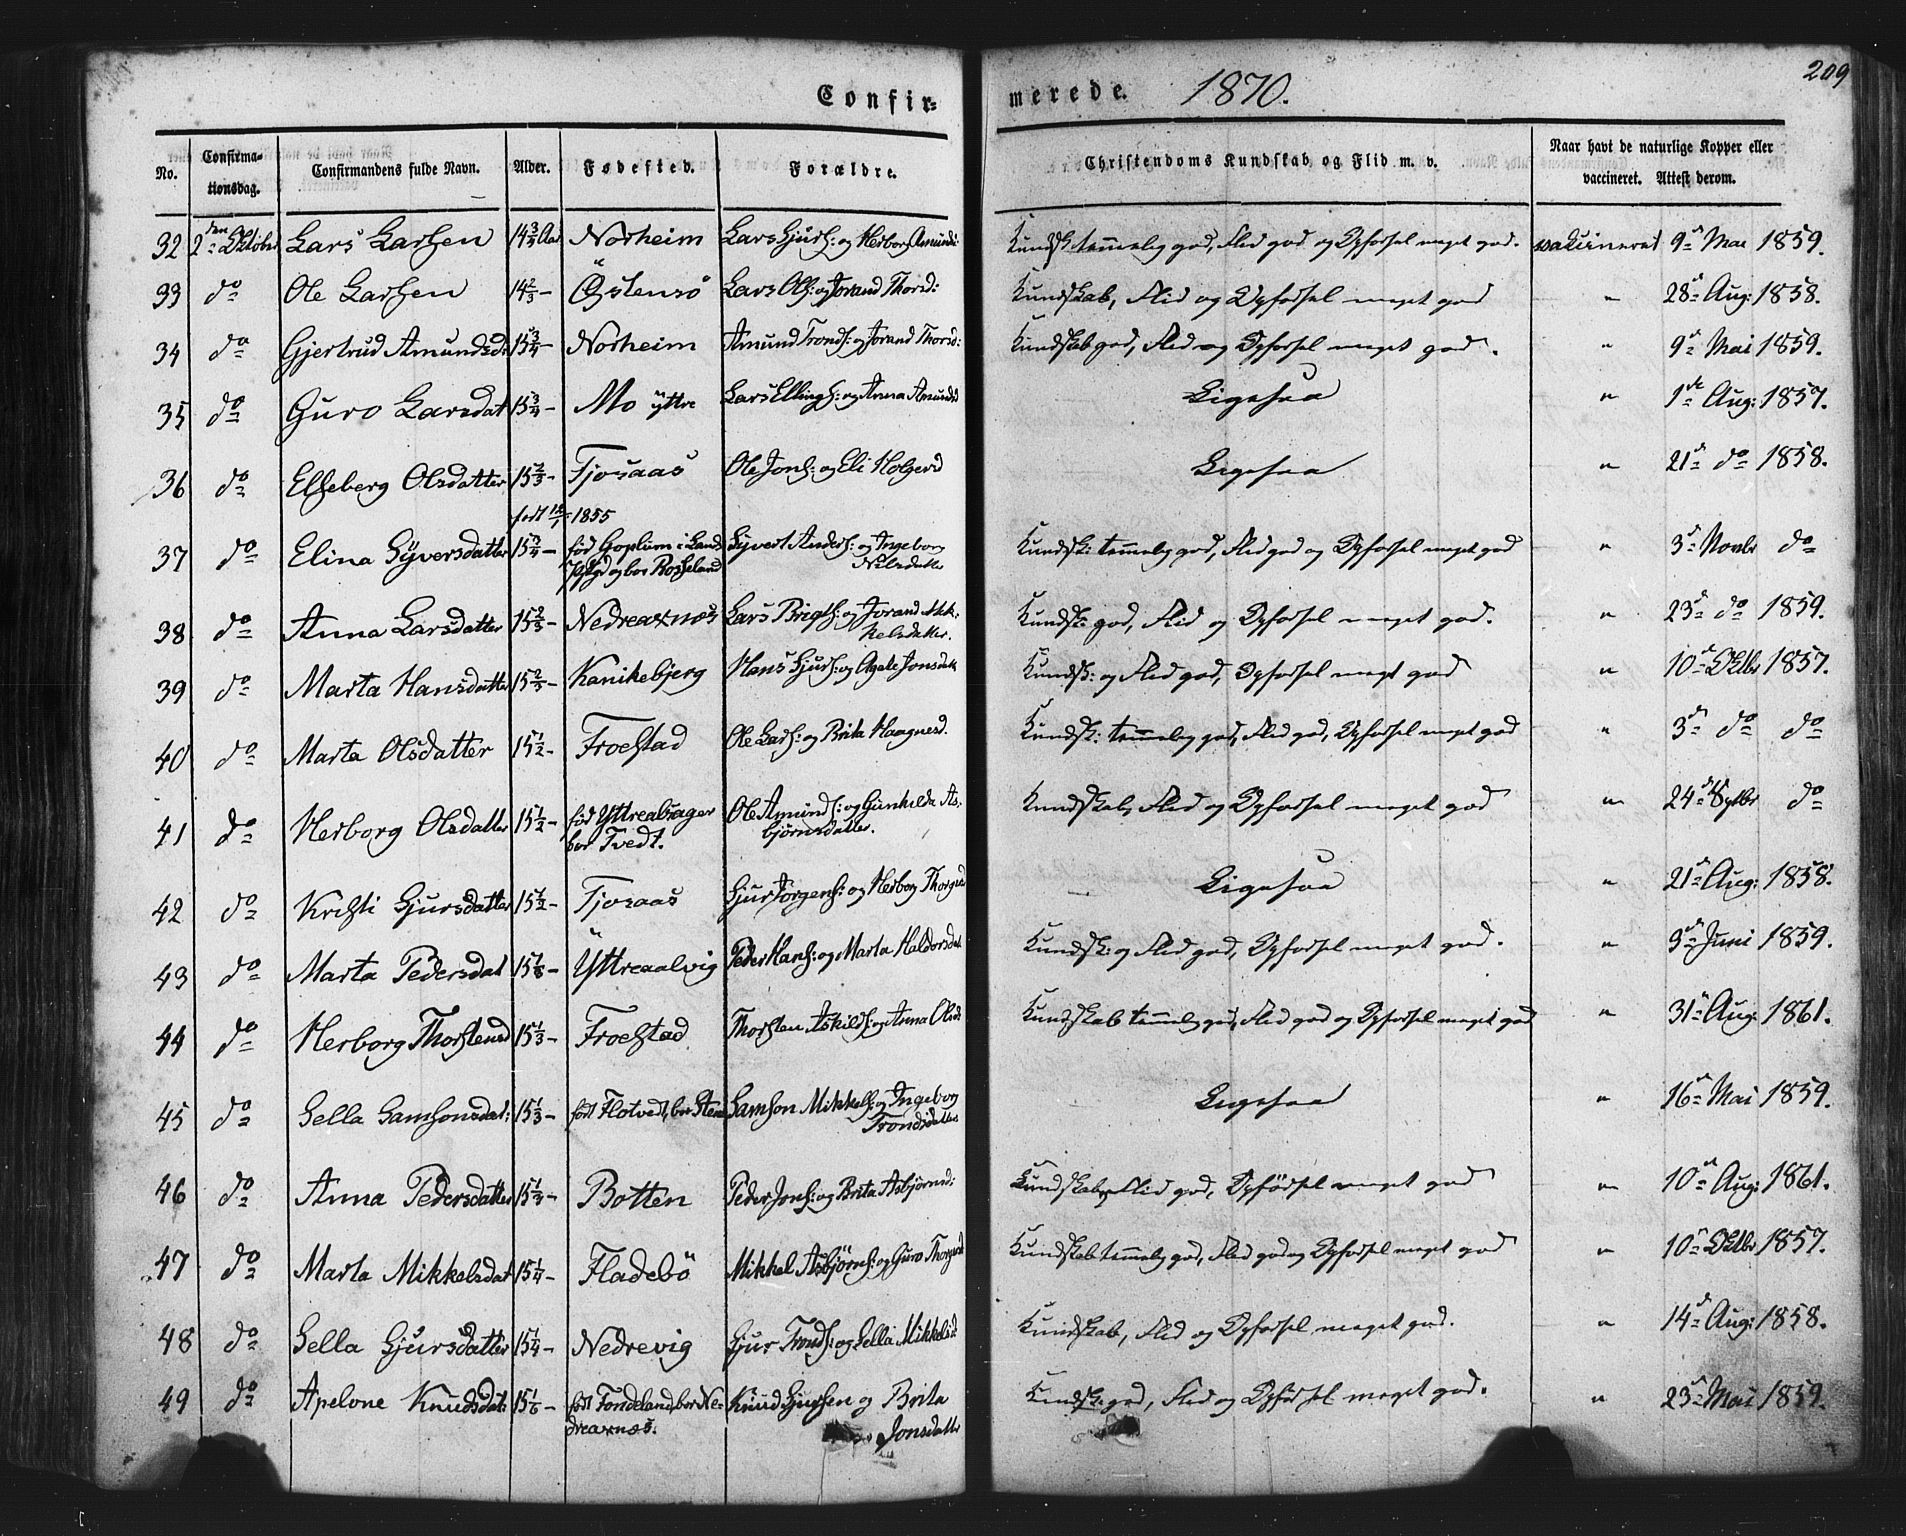 209
Confirmerede. 1870.
No. Confirmationsdag. Confirmandens fulde Navn. Alder. Fødested. Forældre. Christendoms Kundskab og Flid m. v. Naar havt de naturlige Kopper eller vaccineret. Attest derom.
32 2den Oktober Lars Larsen 14 3/4 Aar Norheim Lars Sjurs: og Herborg Amunds: Kundsk: temmelig god, Flid god og Opførsel meget god. vakcineret 9de Mai 1859.
33 do Ole Larsen 14 2/3 – Østensø Lars Ols: og Jorand Thorsd: Kundskab, Flid og Opførsel meget god " 28de Aug: 1858.
34 do Gjertrud Amundsd: 15 3/4 – Norheim Amund Tronds: og Jorand Thorsd: Kundskab god, Flid og Opførsel meget god. " 9de Mai 1859.
35 do Guro Larsdat 15 3/4 – Mo ytre Lars Ellings: og Anna Amundsd Ligesaa " 1ste Aug: 1857.
36 do Elseberg Olsdatter 15 2/3 – Tjosaas Ole Jons: og Eli Holgerd Ligesaa " 21de do 1858.
født 12/1 1855
37 do Elina Syversdatter 15 3/4 – fød Goplum i Lands Pgjd og bor Rosseland Syvert Anders: og Ingeborg Nilsdatter Kundsk: temmelig god, Flid god og Opførsel meget god " 3de Novbr do
38 do Anna Larsdatter 15 2/3 – Nedreaxnæs Lars Brigts: og Jorand Mikkelsdatter. Kundsk: god, Flid og Opførsel meget god. " 23de do 1859.
39 do Marta Hansdatter 15 2/3 – Kanikebjerg Hans Sjurs: og Agate Jonsdatt Kundsk: og Flid god, Opførsel meget god " 10de Oktbr 1857.
40 do Marta Olsdatter 15 1/2 – Froestad Ole Lars: og Brita Haagnesd. Kundsk: temmelig god, Flid god, Opførsel meget god " 3de do do
41 do Herborg Olsdatter 15 1/2 – fød Ytreaalsager bor Tvedt. Ole Amunds: og Gunhilda Asbjørnsdatter. Kundskab, Flid og Opførsel meget god " 24de Sptbr do
42 do Kristi Sjursdatter 15 1/2 – Tjosaas Sjur Jørgens: og Herborg Thorgersd Ligesaa " 21de Aug: 1858.
43 do Marta Pedersdat Yttreaalvig Peder Hans: og Marta Haldorsdat Kundsk: og Flid god, Opførsel meget god. " 3de Juni 1859.
44 do Herborg Thorstensd 15 1/3 – Froestad Thorsten Askilds: og Anna Olsd: Kundskab temmelig god, Flid god og Opførsel meget god " 31te Aug: 1861.
45 do Sella Samsonsdat: 15 1/3 – født Flotvedt, bor Stene Samson Mikkels: og Ingeborg Trondsdatter Ligesaa " 16de Mai 1859.
46 do Anna Pedersdatter 15 1/3 – Botten Peder Jons: og Brita Asbjørnsd: Kundskab og Flid god, Opførsel meget god " 10de Aug: 1861.
47 do Marta Mikkelsdat 15 1/4 – Fladebø Mikkel Asbjørns: og Guro Thorgersd Kundskab temmelig god, Flid god og Opførsel meget god " 10de Oktbr 1857.
48 do Sella Sjursdatter 15 1/4 – Nedrevig Sjur Tronds: og Sella Mikkelsd Kundskab, Flid og Opførsel meget god. " 14de Aug: 1858.
49 do Apelone Knudsdat: 15 1/6 – født Tondeland, bor Nedreaxnæs. Knud Sjursen og Brita Jonsdatter Kundsk: god, Flid og Opførsel meget god. " 23de Mai 1859.